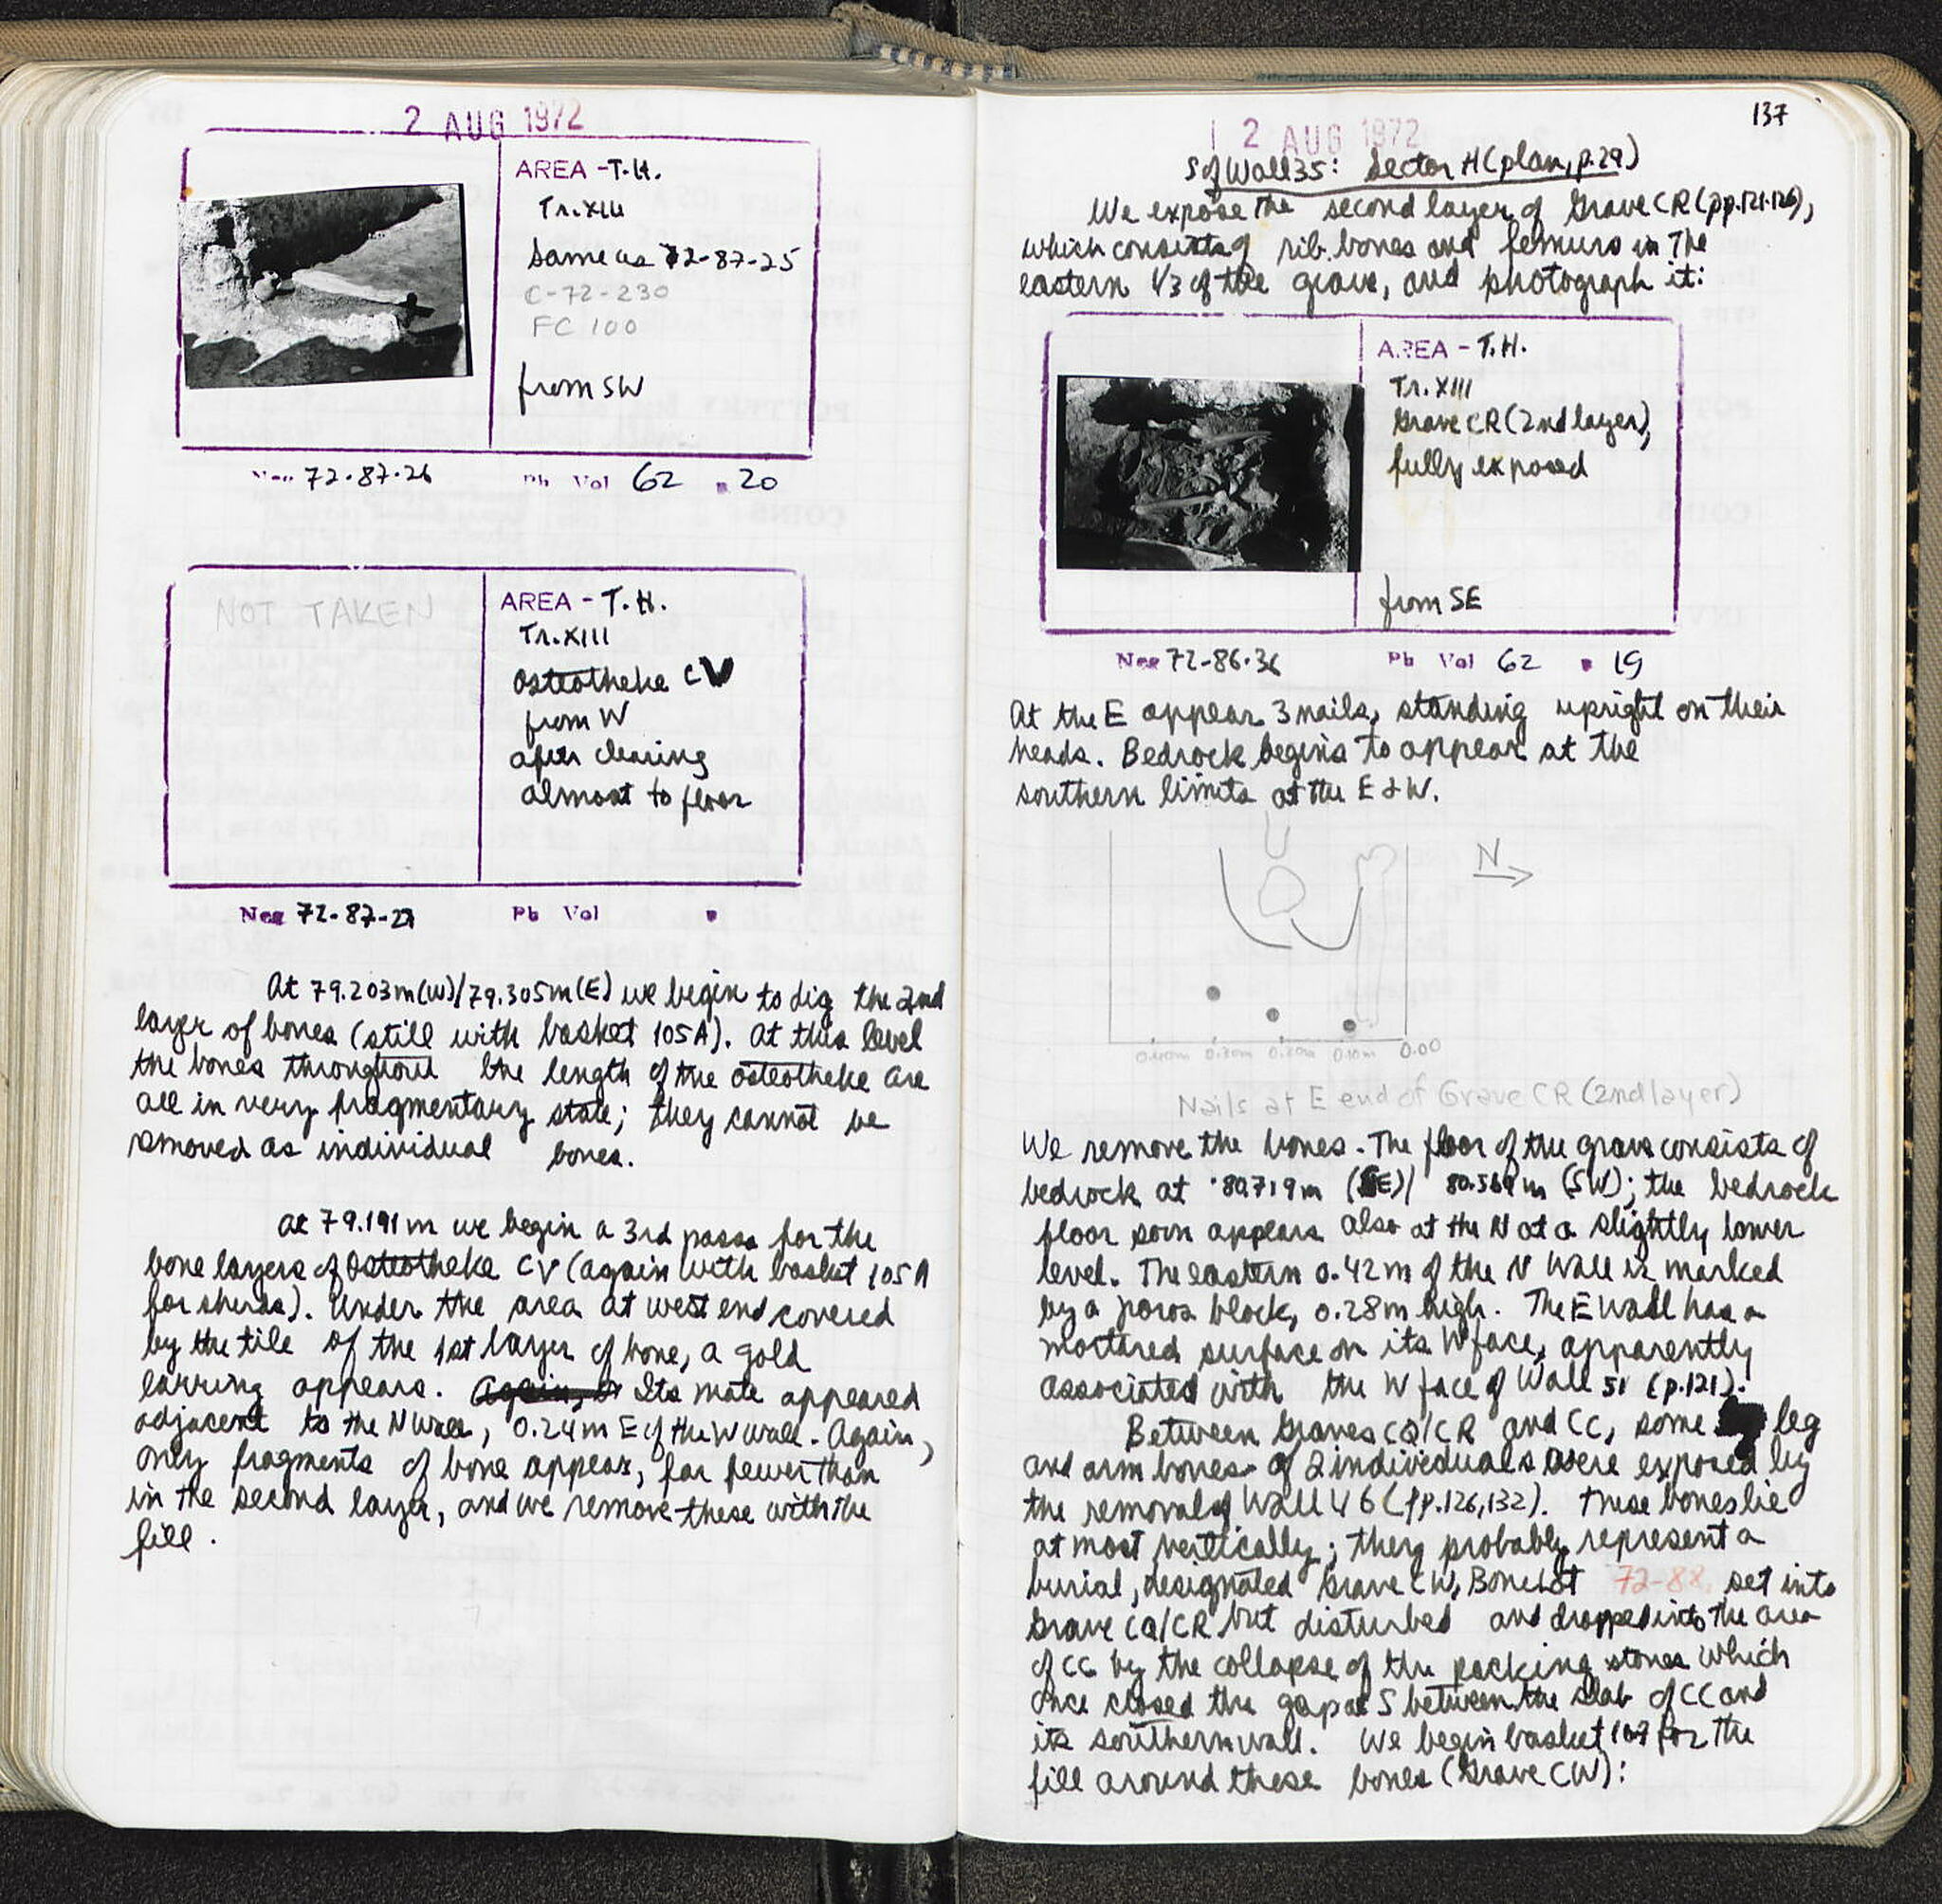 2 AUG 1972
AREA - T.H.
Tr. XIII
Same as 72-87-25
C-72-230
FC 100
from SW
Neg 72-87-26 Pb Vol 62 20
NOT TAKEN
AREA - T.H.
Tr. XIII
Osteotheke CV
from W
after clearing
almost to floor
Neg 72-87-27 Pb Vol
At 79.203m(W)/79.305m(E) we begin to dig the 2nd
layer of bones (still with basket 105A). At this level
the bones throughout the length of the osteotheke are
all in very fragmentary state; they cannot be
removed as individual bones.
At 79.191m we begin a 3rd pass for the
bone layers of Osteotheke CV (again with basket 105A
for sherds). Under the area at west end covered
by the tile of the 1st layer of bone, a gold
earring appears. Its mate appeared
adjacent to the N wall, 0.24m E of the W wall. Again,
only fragments of bone appear, far fewer than
in the second layer, and we remove these with the
fill.
137
2 AUG 1972
S of Wall 35: Sector H (plan, p.29)
We expose the second layer of Grave CR (pp.121-126),
which consists of rib bones and femurs in the
eastern 1/3 of the grave, and photograph it:
AREA - T.H.
Tr. XIII
Grave CR (2nd layer),
fully exposed
from SE
Neg 72-86-36 Pb Vol 62 19
At the E appear 3 nails, standing upright on their
heads. Bedrock begins to appear at the
southern limits at the E & W.
N
0.40m 0.30m 0.20m 0.10m 0.00
Nails at E end of Grave CR (2nd layer)
We remove the bones. The floor of the grave consists of
bedrock at 80.719m (SE)/ 80.569m (SW); the bedrock
floor soon appears also at the N at a slightly lower
level. The eastern 0.42m of the N Wall is marked
by a poros block, 0.28m high. The E Wall has a
mortared surface on its W face, apparently
associated with the W face of Wall 51 (p.121).
Between Graves CQ/CR and CC, some leg
and arm bones of 2 individuals were exposed by
the removal of Wall 46 (pp.126,132). These bones lie
at most vertically; they probably represent a
burial, designated Grave CW, Bone Lot 72-88, set into
Grave CQ/CR but disturbed and dropped into the area
of CC by the collapse of the packing stones which
once closed the gap at S between the slab of CC and
its southern wall. We begin basket 107 for the
fill around these bones (Grave CW):